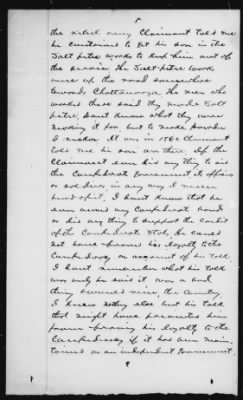 5
the rebel army Claimant told me
he contrived to get his son in the
Salt petre works to keep him out of
the service the Salt petre works
were up the road somewhere
towards Chattanooga the men who
worked there said they made Salt
petre, I dont know what they were
making it for but to make powder
I reckon. It was in 1862 Claimant
told me his son was there. If the
Claimant ever did any thing to aid
the Confederate Government, its officers
or soldiers, in any way I never
heard of it, I dont know that he
ever owned any Confederate bonds
or did any thing to support the credit
of the Confederate States, He could
not have proven his loyalty to the
Confederacy on account of his talk.
I dont remember what his talk
was only he said it was a bad
thing would ruin the country.
I know nothing else but his talk
that might have prevented him
from proving his loyalty to the
Confederacy if it had been main
tained as an independent Government.